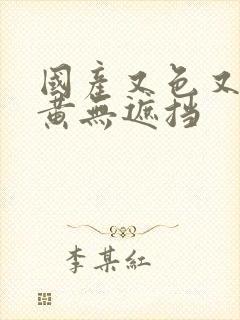 國產又色又
黃無遮挡
李某紅